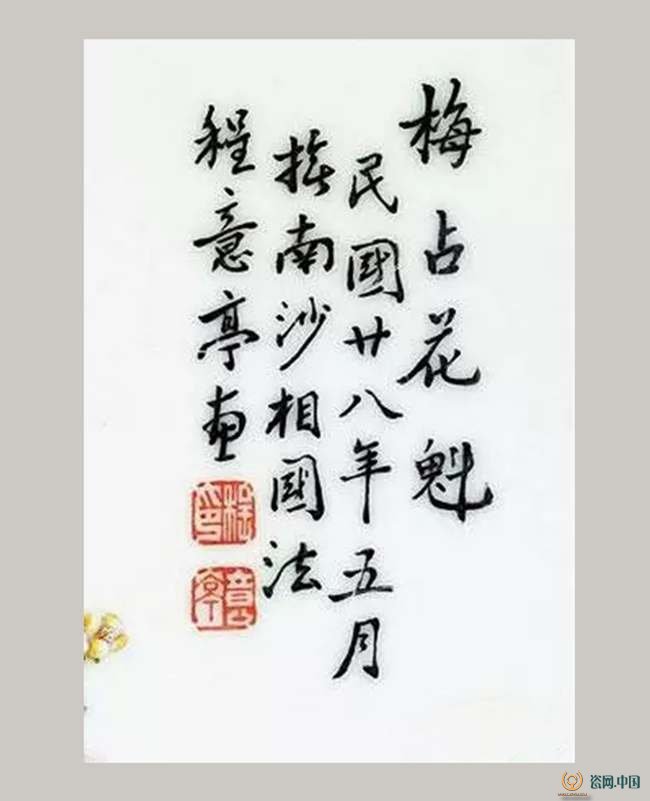 梅占花魁
民國廿八年五月
撫南沙相國法
程意亭畫
程印
意亭
瓷网.中国